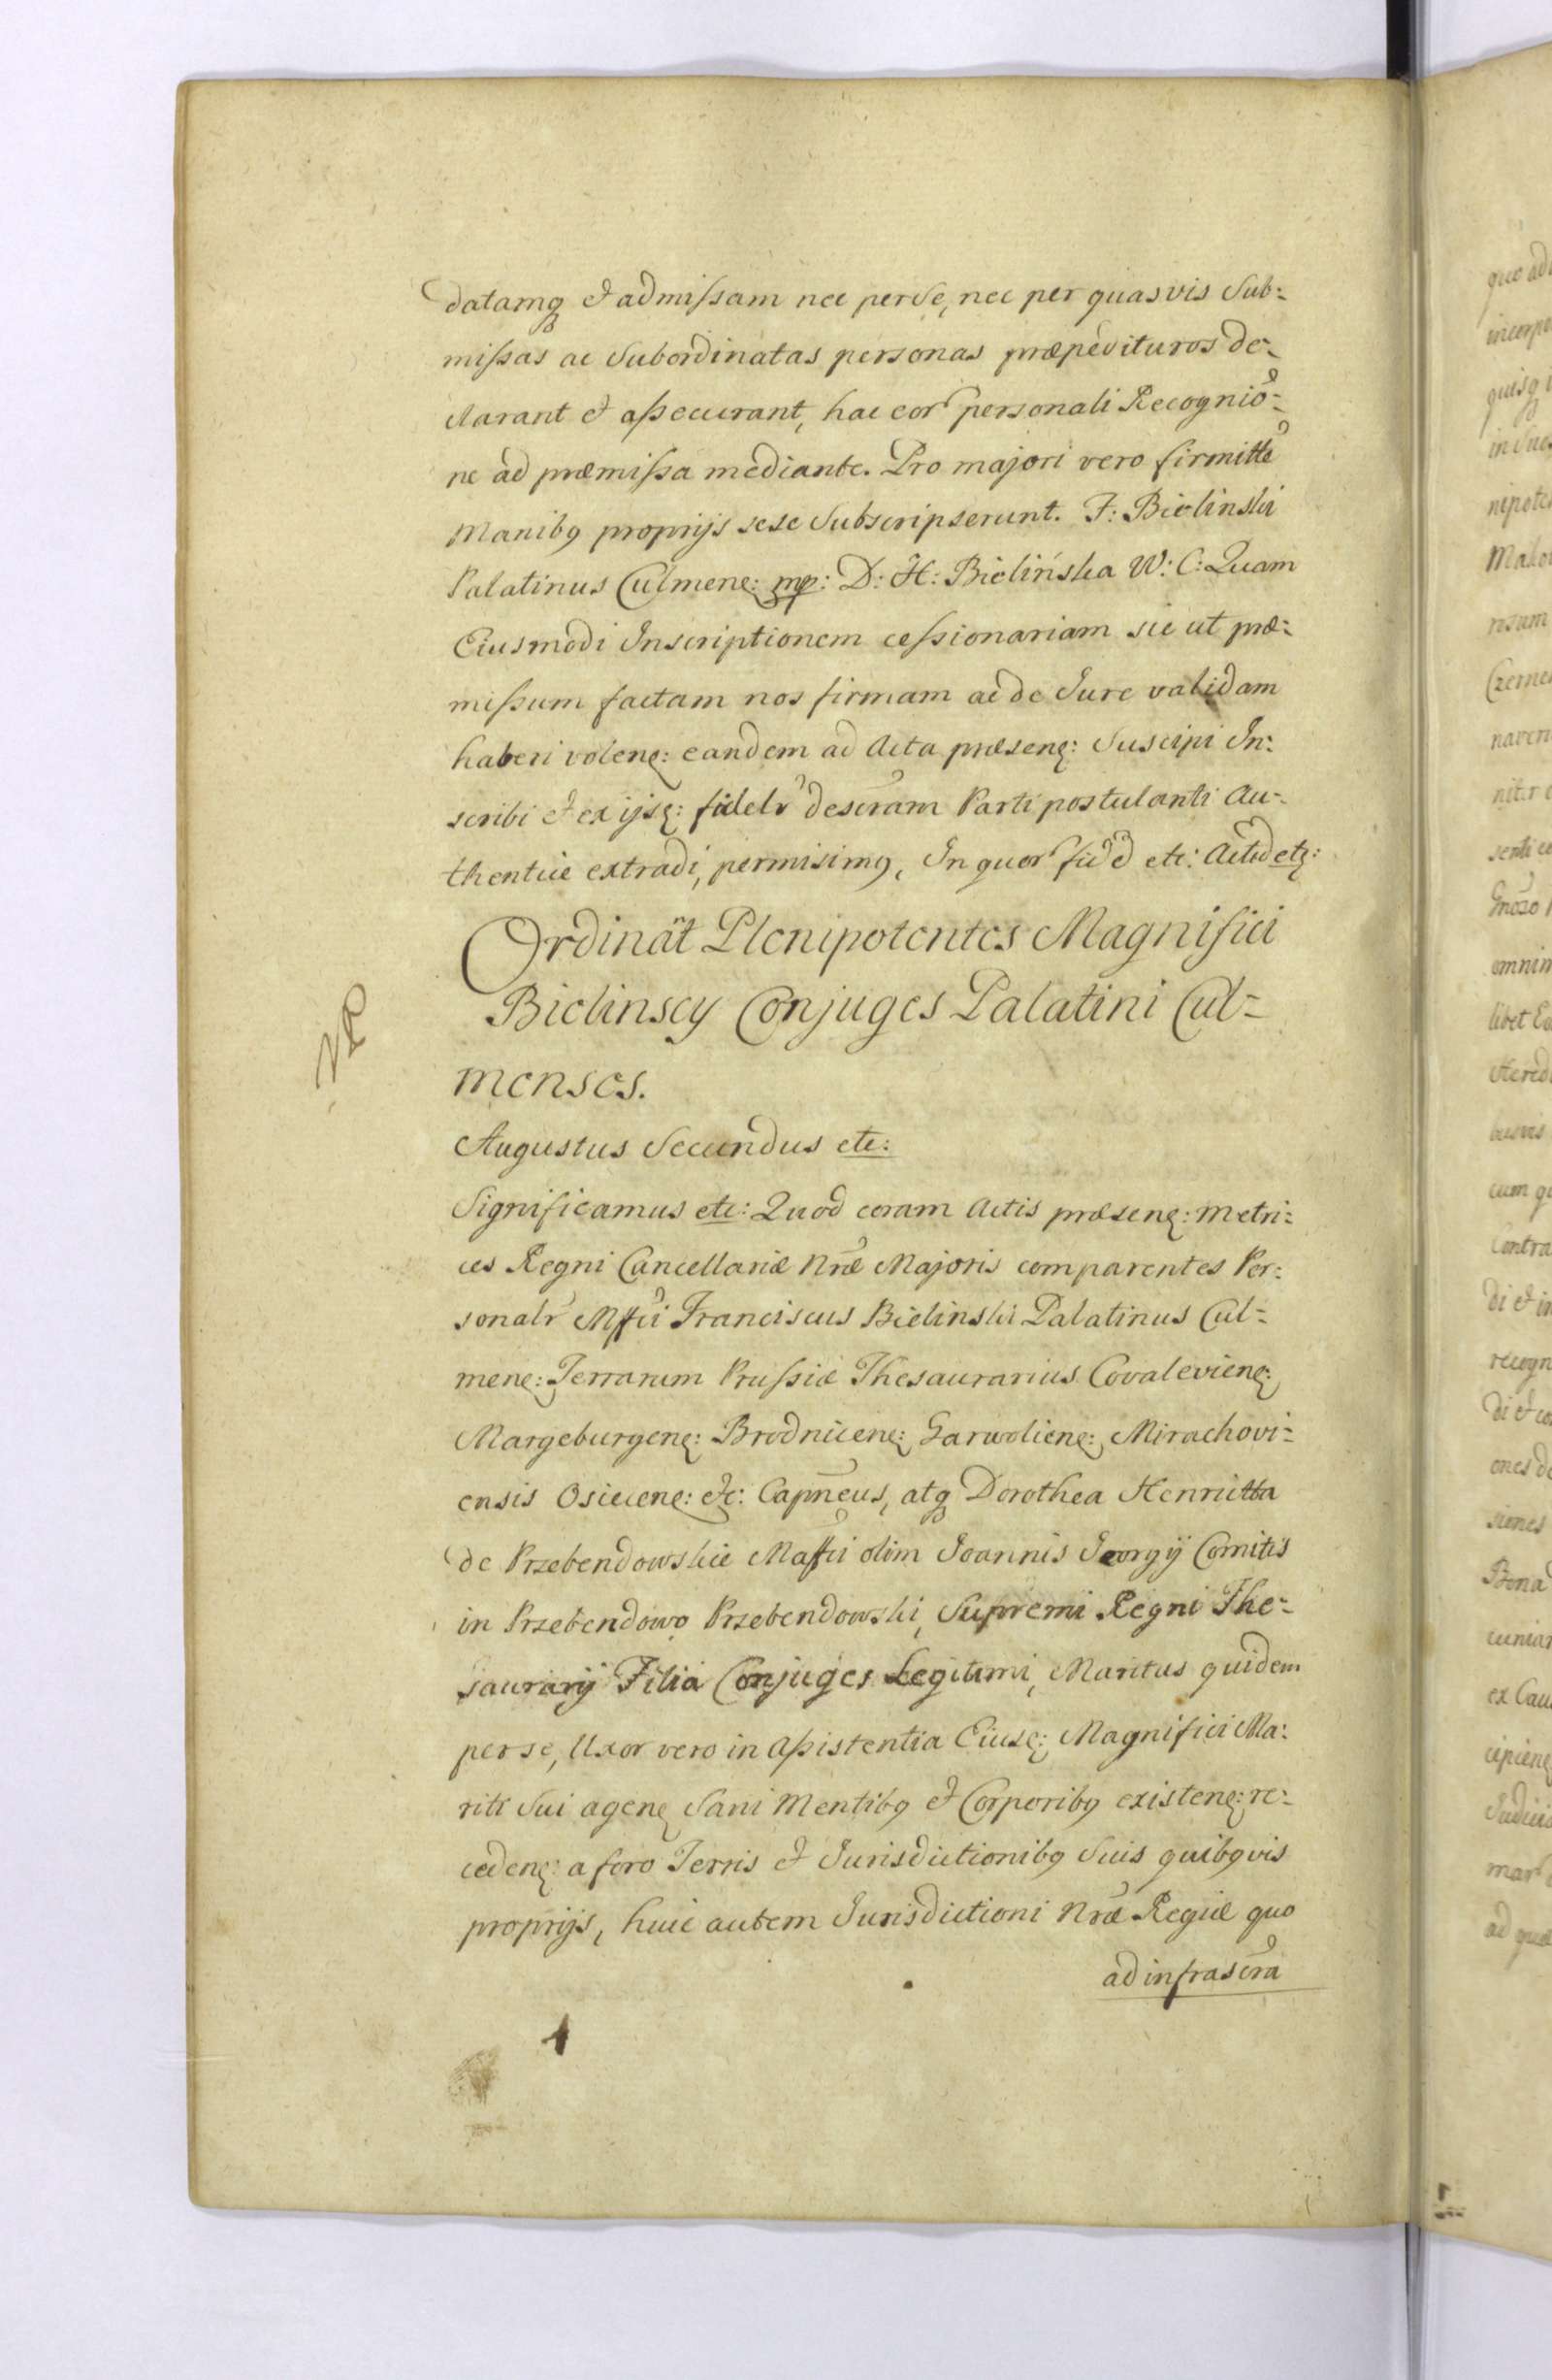 datamq et admissam nec per se, nec per quasvis Sub:
missas ac Subordinatas personas præpedituros de:
clarant et assecurant, hac eor personali Recognio:
ne ad præmissa mediante. Pro majori vero firmitte
Manibq proprijs sese Subscripserunt. F: Bielinski
Palatinus Culmenę: mp: D: H: Bielińska W: C: Quam
Eiusmodi Inscriptionem cessionariam sic ut præ:
missum factam nos firmam ac de Jure validam
haberi volenę: eandem ad Acta præsenę: Suscipi In:
scribi et ex ijsę: fidelr descram Parti postulanti Au:
thentice extradi, permisimq, In quor fid etc: Actu etc:
Ordinãt Plenipotentes Magnifici
Bielinscy Conjuges Palatini Cul=
menses.
Augustus Secundus etc:
Significamus etc: Quod coram Actis præsenę: Metri:
ces Regni Cancellariæ Nræ Majoris comparentes Per:
sonalr Mffci Franciscus Bielinski Palatinus Cul=
menę: Terrarum Prussiæ Thesaurarius Covalevienę:
Margeburgenę: Brodnicenę: Garwolienę: Mirachovi=
ensis Osiecenę: etc: Capneus, atq Dorothea Henrietta
de Przebendowskie Maffci olim Joannis Georgij Comitis
in Przebendowo Przebendowski, Supremi Regni The=
saurarij Filia Conjuges Legitimi, Maritus quidem
per se, Uxor vero in Assistentia Eiusę: Magnifici Ma:
riti Sui agenę Sani Mentibq et Corporibq existenę: re:
cedenę: a foro Terris et Jurisdictionibq Suis quibqvis
proprijs, huic autem Jurisdictioni Nræ Regiæ quo
ad infrascra